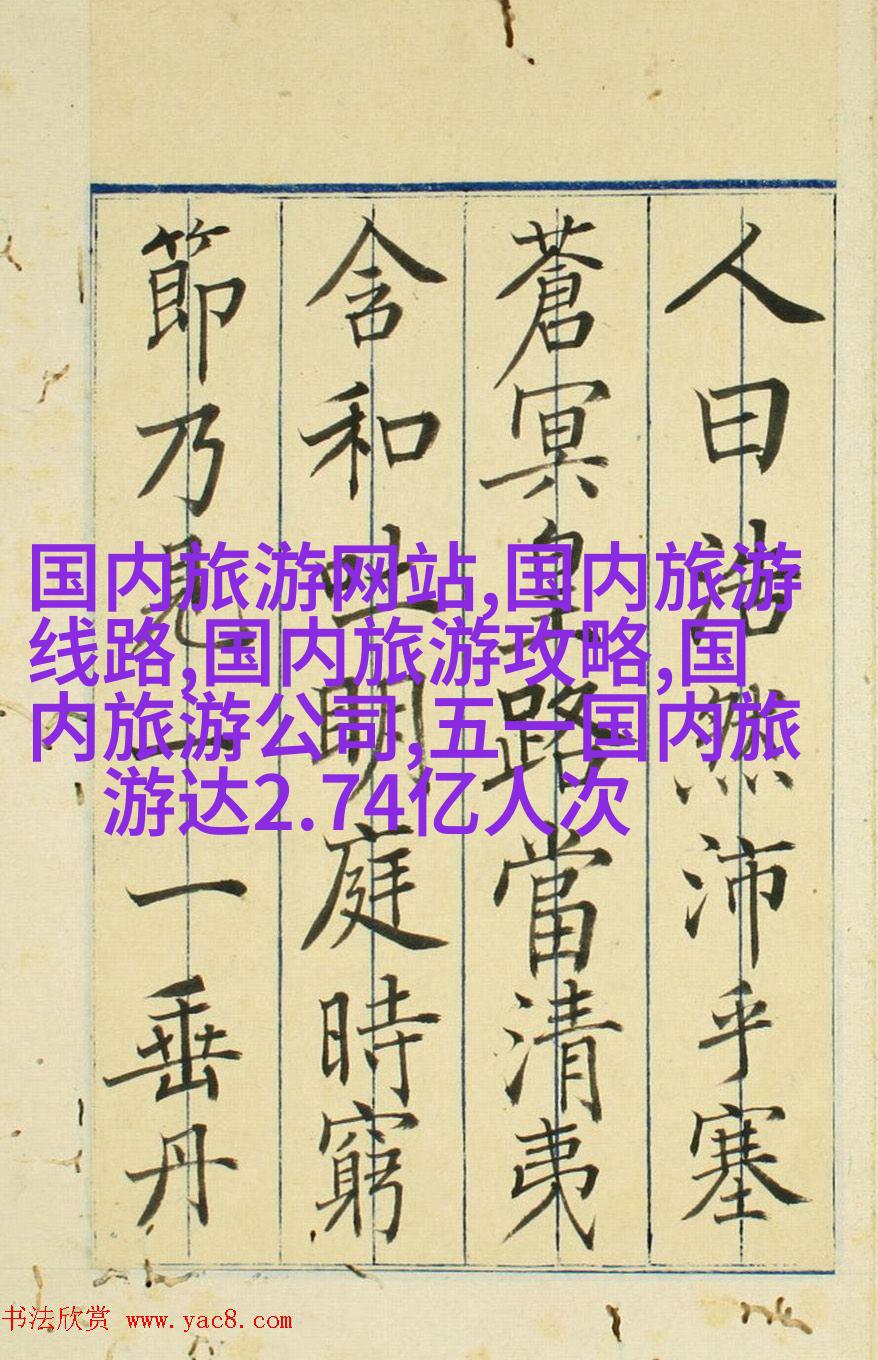 人曰浩然沛乎塞
蒼冥皇路當清夷
含和吐明庭時窮
節乃見一一垂丹
国内旅游网站,国内旅游
线路,国内旅游攻略,国
内旅游公司,五一国内旅
游达2.74亿人次
书法欣赏 www.yac8.com